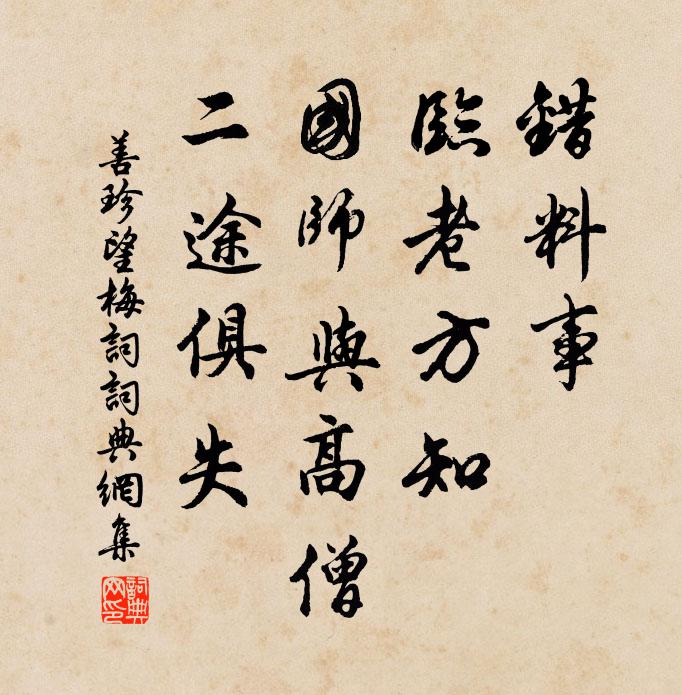 錯料事
臨老方知
國師與高僧
二途俱失
善珍望梅詞詞典網集
詞典网印